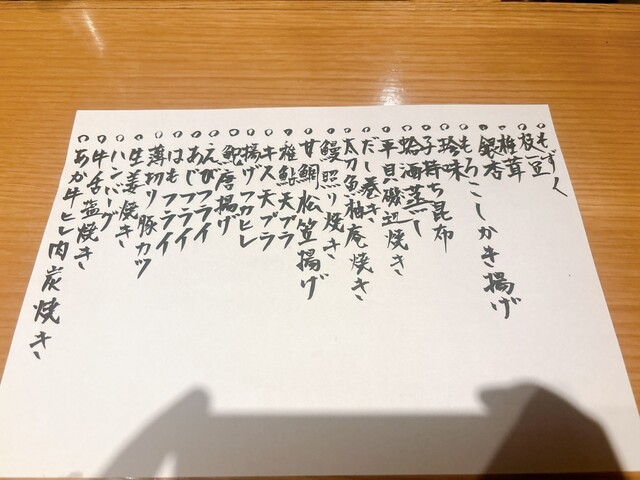 もずく
枝豆
椎茸
銀杏
もろこしかき揚げ
珍味
子持ち昆布
蛤酒蒸し
平目磯辺焼き
だし巻き
太刀魚柚庵焼き
鰻照り焼き
甘鯛松笠揚げ
稚鮎天ブラ
キス天ブラ
揚げフカヒレ
鮑唐揚げ
えびフライ
あじフライ
はもフライ
薄切り豚カツ
生姜焼き
ハンバーグ
牛舌塩焼き
あか牛ヒレ肉炭焼き